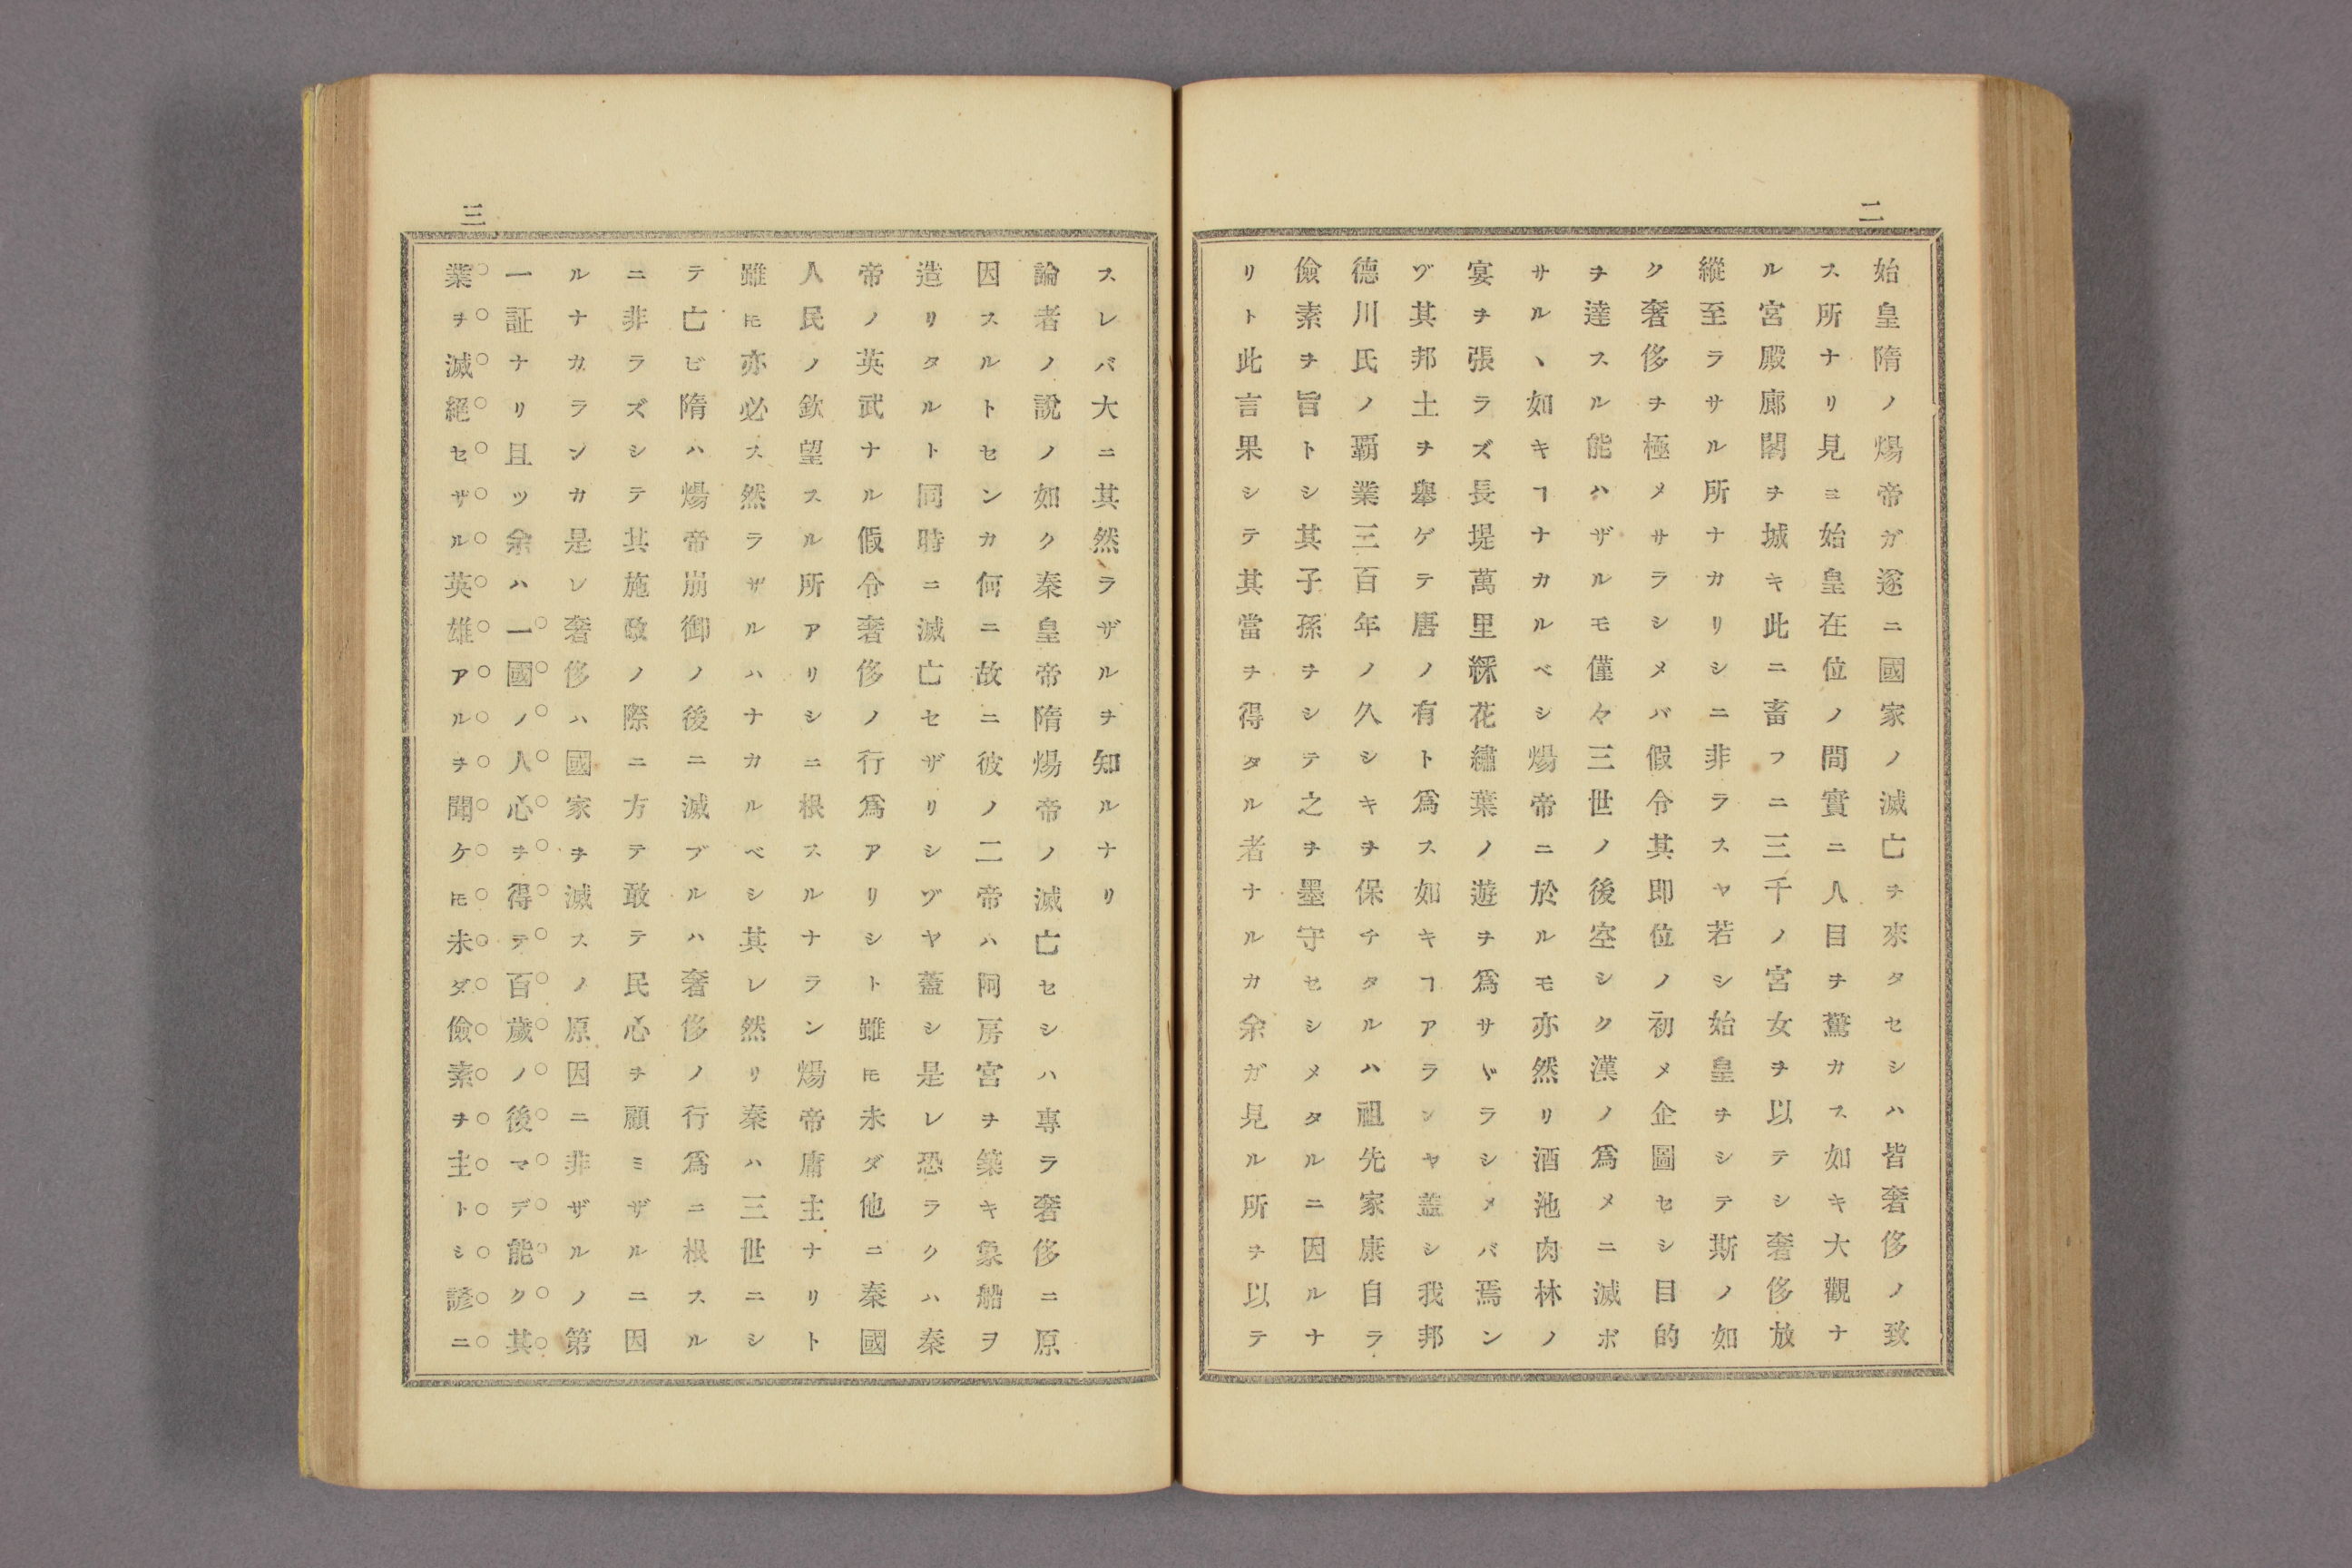 二
始皇隋ノ煬帝ガ遂ニ國家ノ滅亡ヲ來タセシハ皆奢侈ノ致
ス所ナリ見ヨ始皇在位ノ間實ニ人目ヲ驚カス如キ大觀ナ
ル宮殿廊閣ヲ城キ此ニ畜フニ三千ノ宮女ヲ以テシ奢侈放
縱至ラサル所ナカリシニ非ラスヤ若シ始皇ヲシテ斯ノ如
ク奢侈ヲ極メサラシメバ假令其即位ノ初メ企圖セシ目的
ヲ達スル能ハザルモ僅々三世ノ後空シク漢ノ爲メニ滅ボ
サルヽ如キヿナカルベシ煬帝ニ於ルモ亦然リ酒池肉林ノ
宴ヲ張ラズ長堤萬里綵花繡葉ノ遊ヲ爲サヾラシメバ焉ン
ゾ其邦土ヲ舉ゲテ唐ノ有ト爲ス如キヿアランヤ蓋シ我邦
德川氏ノ覇業三百年ノ久シキヲ保チタルハ祖先家康自ラ
儉素ヲ旨トシ其子孫ヲシテ之ヲ墨守セシメタルニ因ルナ
リト此言果シテ其當ヲ得タル者ナルカ余ガ見ル所ヲ以テ
三
スレバ大ニ其然ラザルヲ知ルナリ
論者ノ說ノ如ク秦皇帝隋煬帝ノ滅亡セシハ專ラ奢侈ニ原
因スルトセンカ何ニ故ニ彼ノ二帝ハ阿房宮ヲ築キ象船ヲ
造リタルト同時ニ滅亡セザリシゾヤ蓋シ是レ恐ラクハ秦
帝ノ英武ナル假令奢侈ノ行爲アリシト雖𪜈未ダ他ニ秦國
人民ノ欽望スル所アリシニ根スルナラン煬帝庸主ナリト
雖𪜈亦必ス然ラザルハナカルベシ其レ然リ秦ハ三世ニシ
テ亡ビ隋ハ煬帝崩御ノ後ニ滅ブルハ奢侈ノ行爲ニ根スル
ニ非ラズシテ其施政ノ際ニ方テ敢テ民心ヲ顧ミザルニ因
ルナカランカ是レ奢侈ハ國家ヲ滅スノ原因ニ非ザルノ第
一証ナリ且ツ余ハ一國ノ人心ヲ得テ百歲ノ後マデ能ク其
業ヲ滅絕セザル英雄アルヲ聞ケ𪜈未ダ儉素ヲ主トシ諺ニ